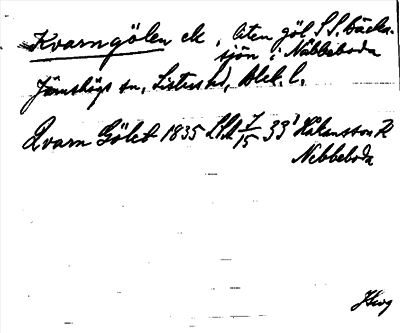 Kvarngölen ek, liten göl S S. Bäcka-
sjön i Nabbeboda
Jämshögs sn, Listers hd, Blek. l.
Qvarn Gölet 1835 LSA 7/15 33 Håkansson K
Nebbeboda